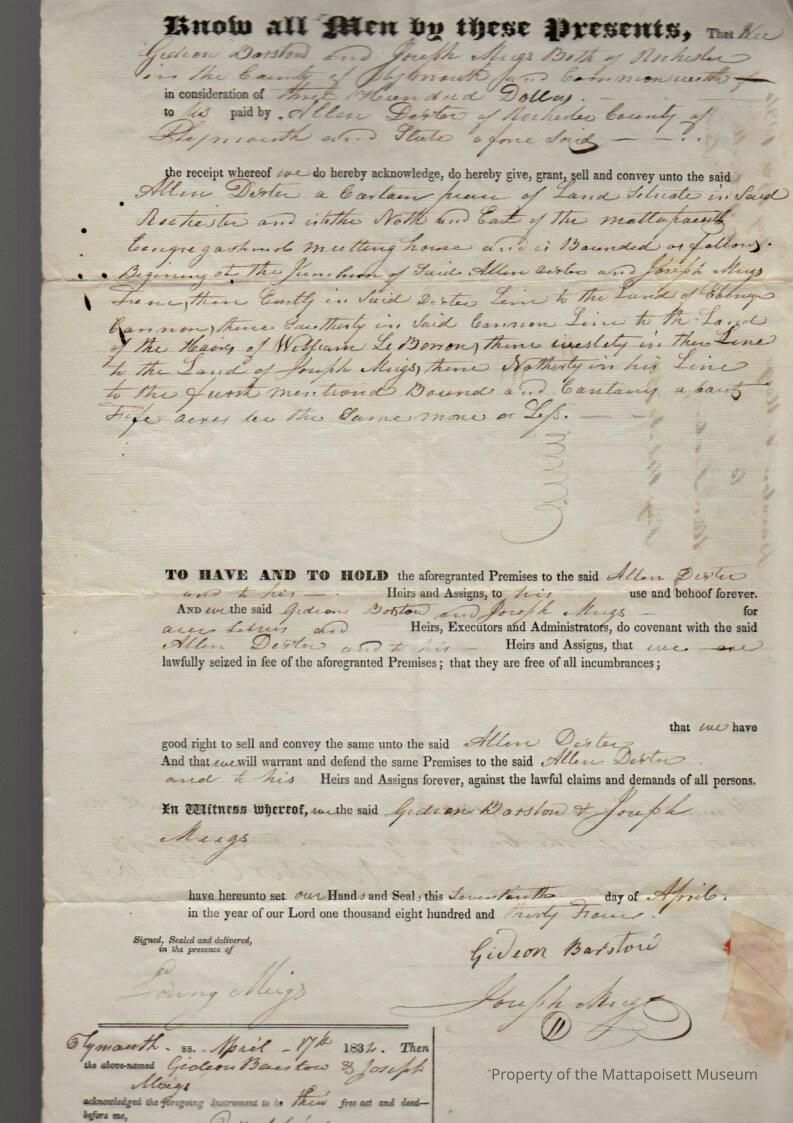 Know all Men by these Presents, That We
Gideon Barstow and Joseph Meigs Both of Rochester
in the County of Plymouth and Common weith of
in consideration of three Hundred Dollars.
to us paid by Allen Dexter of Rochester County of
Plymouth and State afore Said
the receipt whereof we do hereby acknowledge, do hereby give, grant, sell and convey unto the said
Allen Dexter a Cartain peace of Land Situate in Said
Rochester and is the Noth and East of the mattapoisett
Congregashnal meetting house and is Bounded as follows.
Begining at the Junction of Said Allen Dexter and Joseph Meigs
thence Eastly in Said Dexter Line to the Land of
Cannon, thence Southerly in Said Cannon Line to the Land
of the Hairs of William Le Boron, thence westely in thare Line
to the Land of Joseph Meigs, thence Notherly in his Line
to the furst mentiond Bound and Cantaing about
Five acres be the Same more or Less.
TO HAVE AND TO HOLD the aforegranted Premises to the said Allen Dexter
and to his Heirs and Assigns, to his use and behoof forever.
AND we the said Gideon Barstow and Joseph Meigs for
Heirs, Executors and Administrators, do covenant with the said
Allen Dexter and to his Heirs and Assigns, that we are
lawfully seized in fee of the aforegranted Premises; that they are free of all incumbrances;
that we have
good right to sell and convey the same unto the said Allen Dexter
And that we will warrant and defend the same Premises to the said Allen Dexter
and to his Heirs and Assigns forever, against the lawful claims and demands of all persons.
In Witness whereof, we the said Gideon Barstow & Joseph
Meigs
have hereunto set our Hands and Seals this Sevententh day of April.
in the year of our Lord one thousand eight hundred and thirty
Signed, Sealed and delivered,
in the presence of
Gideon Barstow
Loring Meigs
Joseph Meigs
Plymouth. ss. April 17th 183 . Then
the above-named Gideon Barstow & Joseph
Meigs
acknowledged the foregoing Instrument to be their free act and deed—
before me,
Property of the Mattapoisett Museum